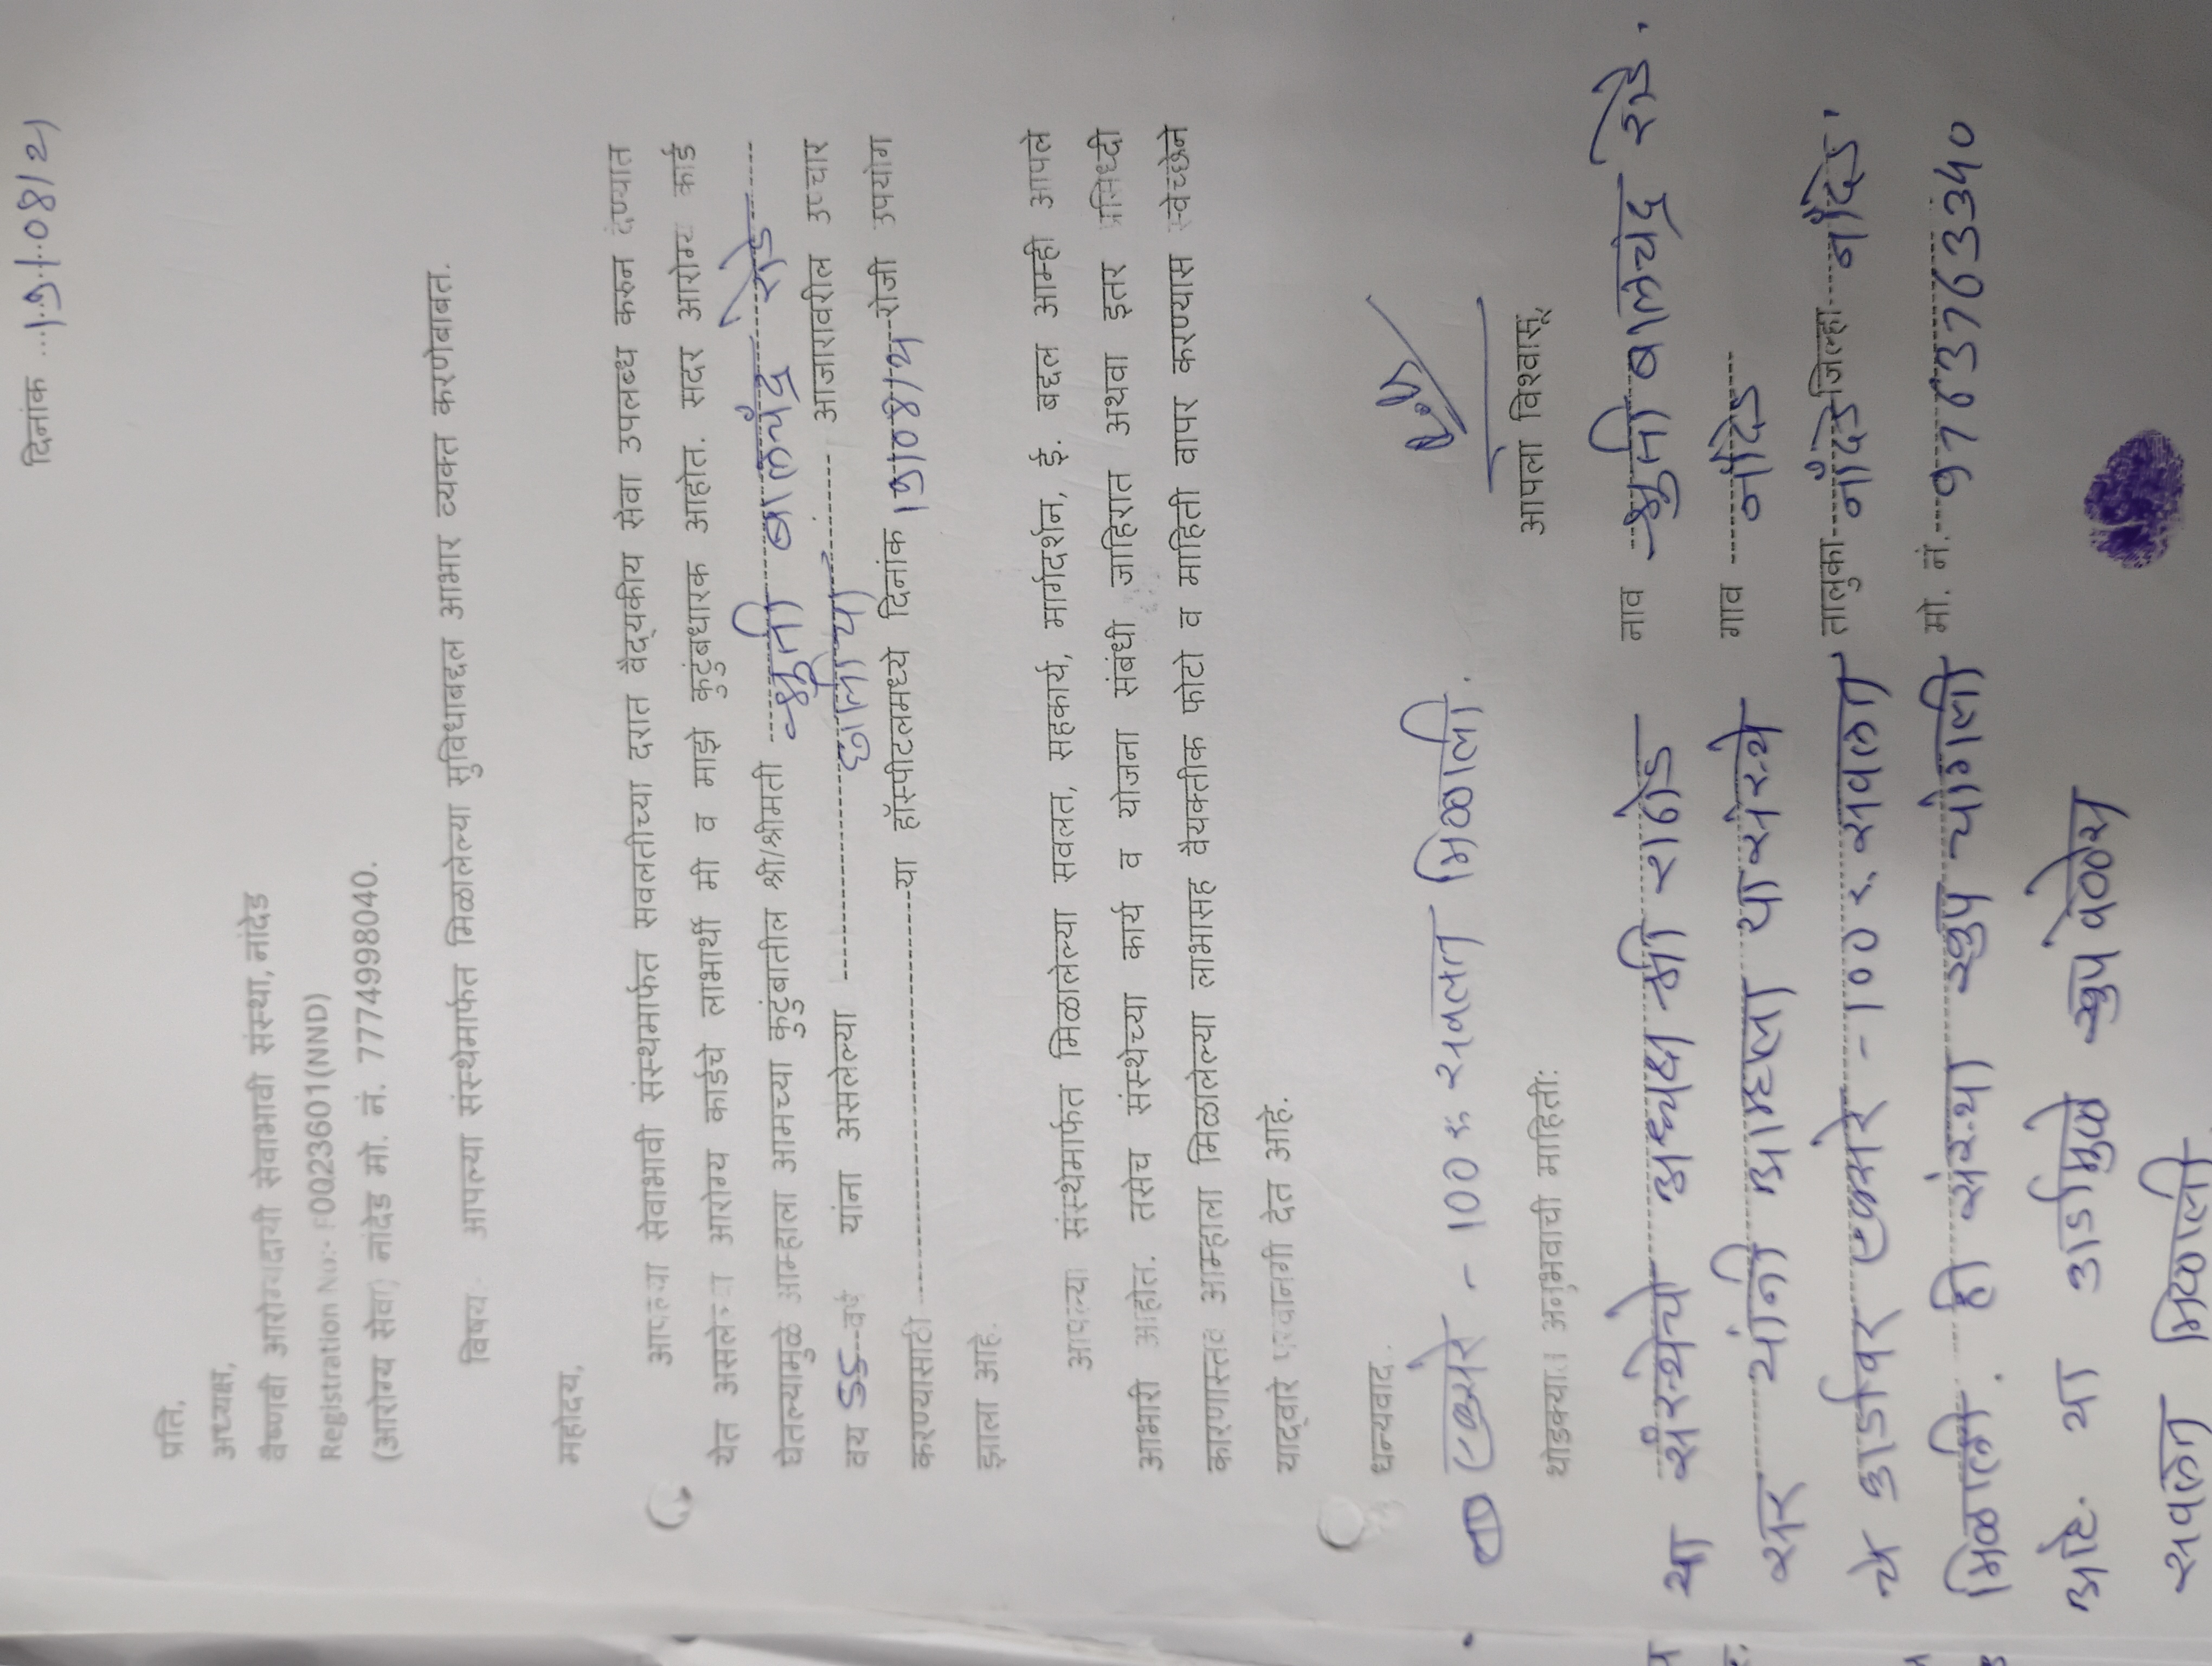 दिनांक ...19/08/21
प्रति,
अध्यक्ष,
वैष्णवी आरोग्यदायी सेवाभावी संस्था, नांदेड
Registration No:- F0023601(NND)
(आरोग्य सेवा) नांदेड मो. नं. 7774998040.
विषय:- आपल्या संस्थेमार्फत मिळालेल्या सुविधाबद्दल आभार व्यक्त करणेबाबत.
महोदय,
आपल्या सेवाभावी संस्थमार्फत सवलतीच्या दरात वैद्यकीय सेवा उपलब्ध करुन देण्यात
येत असलेल्या आरोग्य कार्डचे लाभार्थी मी व माझे कुटुंबधारक आहोत. सदर आरोग्य कार्ड
घेतल्यामुळे आम्हाला आमच्या कुटुंबातील श्री/श्रीमती बालचंद
वय 55 वर्ष यांना असलेल्या छातीचा आजारावरील उपचार
करण्यासाठी या हॉस्पीटलमध्ये दिनांक 19/08/21 रोजी उपयोग
झाला आहे.
आपल्या संस्थेमार्फत मिळालेल्या सवलत, सहकार्य, मार्गदर्शन, ई. बद्दल आम्ही आपले
आभारी आहोत. तसेच संस्थेच्या कार्य व योजना संबंधी जाहिरात अथवा इतर प्रसिध्दी
कारणास्तव आम्हाला मिळालेल्या लाभासह वैयक्तीक फोटो व माहिती वापर करण्यास स्वेच्छेने
याद्वारे परवानगी देत आहे.
धन्यवाद.
एक्सरे - 100 रु सवलत मिळाली.
आपला विश्वासू
थोडक्यात अनुभवाची माहिती:
नाव बालचंद
या संस्थेचे अध्यक्ष श्री राठोड
गाव नांदेड
सर यांनी आम्हला या संस्थे
तालुका नांदेड जिल्हा नांदेड
चे कार्डावर एक्सरे - 100 रु सवलत
मो. नं. 9763763340
मिळाली. ही संस्था खुप चांगली
आहे. या कार्डामुळे खुप वेळेस
सवलत मिळाली